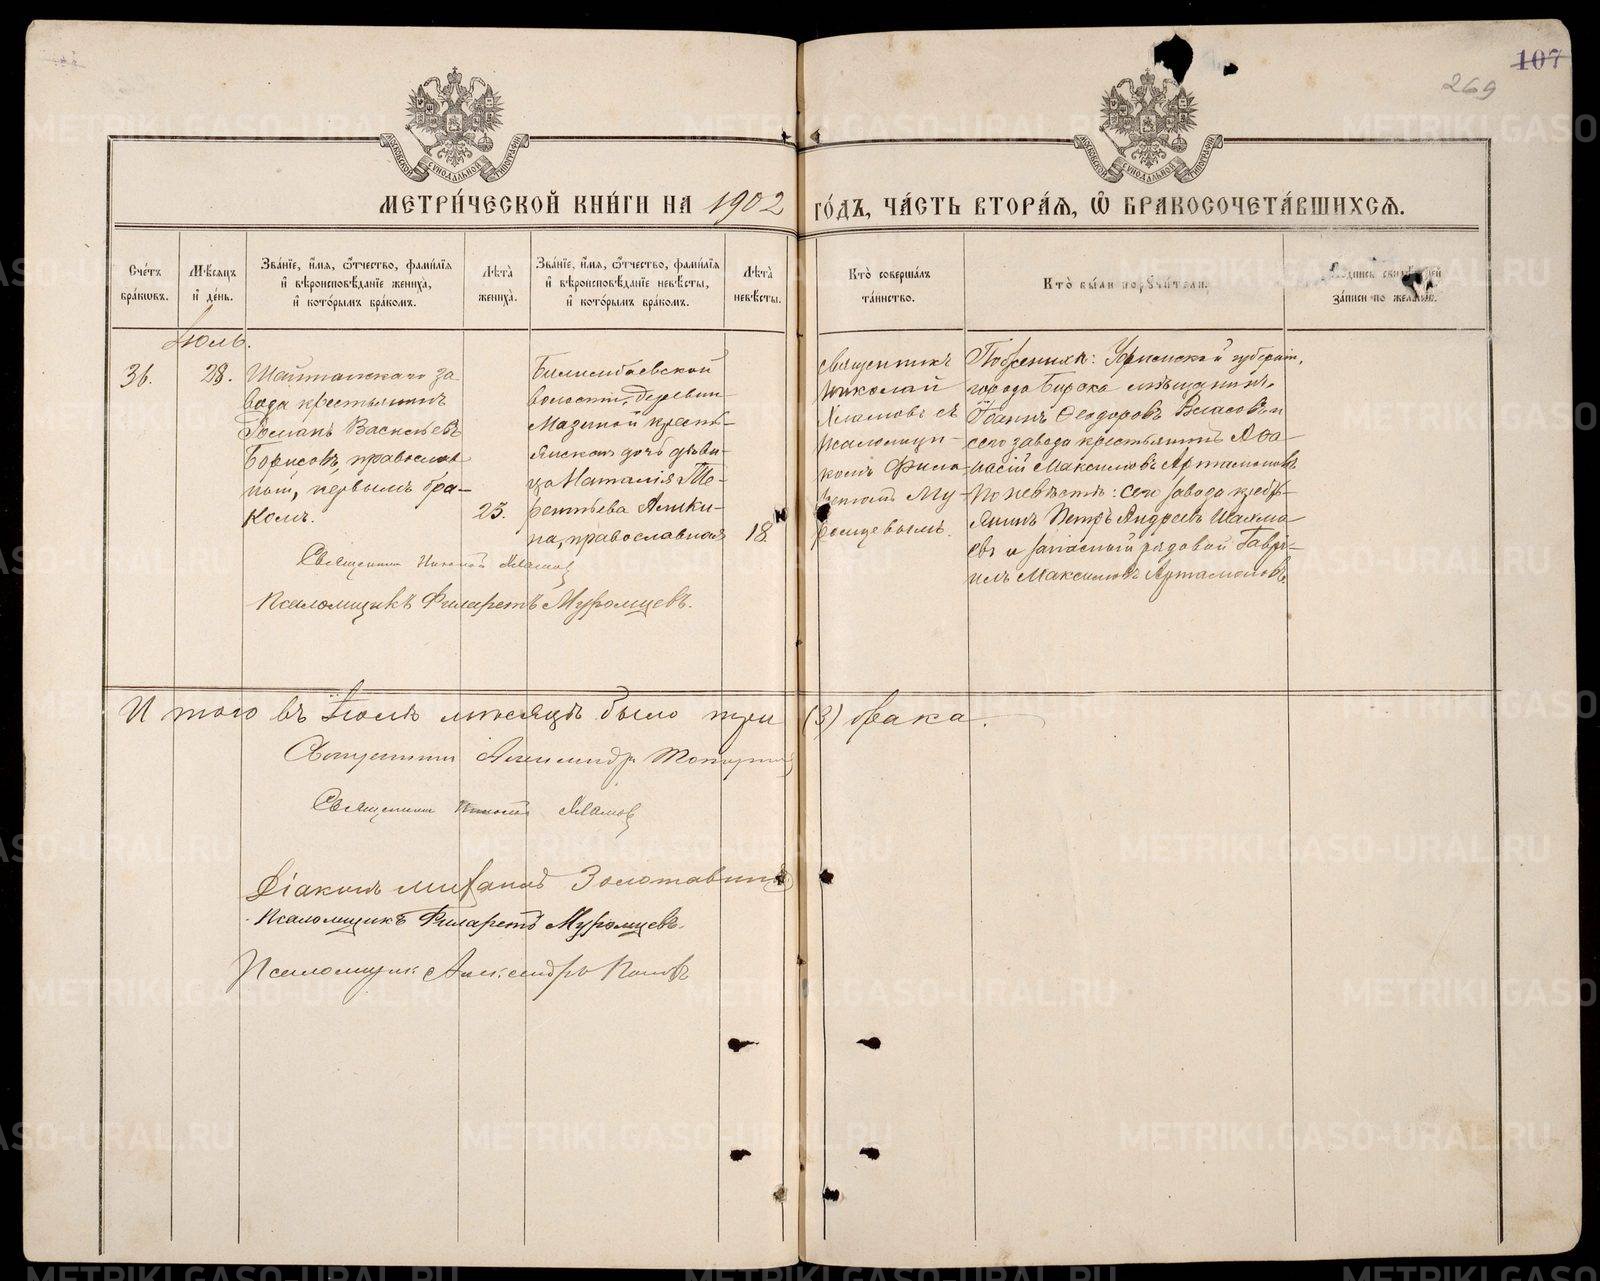 107
269
МОСКОВСКОЙ СУНОДАЛЬНОЙ ТИПОГРАФІИ
МОСКОВСКОЙ СУНОДАЛЬНОЙ ТИПОГРАФІИ
МЕТРИ́ЧЕСКОЙ КНИ́ГИ НА 1902 ГО́ДЪ, ЧА́СТЬ ВТОРА́Я, Ѡ БРАКОСОЧЕТА́ВШИХСЯ.
Сче́тъ
бра́кѡвъ.
Мѣ́сяцъ
и҆ де́нь.
Зва́нїе, и҆́мя, ѻ҆́тчество, фами́лїя
и҆ вѣроисповѣ́данїе жениха̀,
и҆ кото́рымъ бра́комъ.
Лѣ́та
жениха̀.
Зва́нїе, и҆́мя, ѻ҆́тчество, фами́лїя
и҆ вѣроисповѣ́данїе невѣ́сты,
и҆ кото́рымъ бра́комъ.
Лѣ́та
невѣ́сты.
Кто̀ соверша́лъ
та́инство.
Кто̀ бы́ли порꙋчи́тели.
По́дпись свидѣ́телей
за́писи по жела́нїю.
Іюль.
36.
28.
Шайтанскаго за
вода крестьянинъ
Романъ Васильевъ
Борисовъ, православ
ный, первымъ бра-
комъ.
23.
Билимбаевской
волости, деревни
Мазиной кресть-
янская дочь дѣви-
ца Наталія Те-
рентьева Аники-
на, православная
18.
священникъ
Николай
Хламовъ съ
псаломщи-
комъ Фила
ретомъ Му
ромцевымъ.
По женихѣ: Уфимской губерніи,
города Бирска мѣщанинъ
Іоаннъ Ѳеодоровъ Власовъ и
сего завода крестьянинъ Аѳа-
насій Максимовъ Артамоновъ
По невѣстѣ: сего завода кресть-
янинъ Петръ Андреевъ Шахма-
евъ и запасный рядовой Гаврі-
илъ Максимовъ Артамоновъ
Священникъ Николай Хламовъ
Псаломщикъ Филаретъ Муромцевъ.
Итого въ Іюлѣ мѣсяцѣ было три (3) брака.
Священникъ Александръ
Священникъ Николай Хламовъ
Діаконъ Михаилъ Золотавинъ
Псаломщикъ Филаретъ Муромцевъ.
Псаломщикъ Александръ Поповъ
METRIKI.GASO-URAL.RU